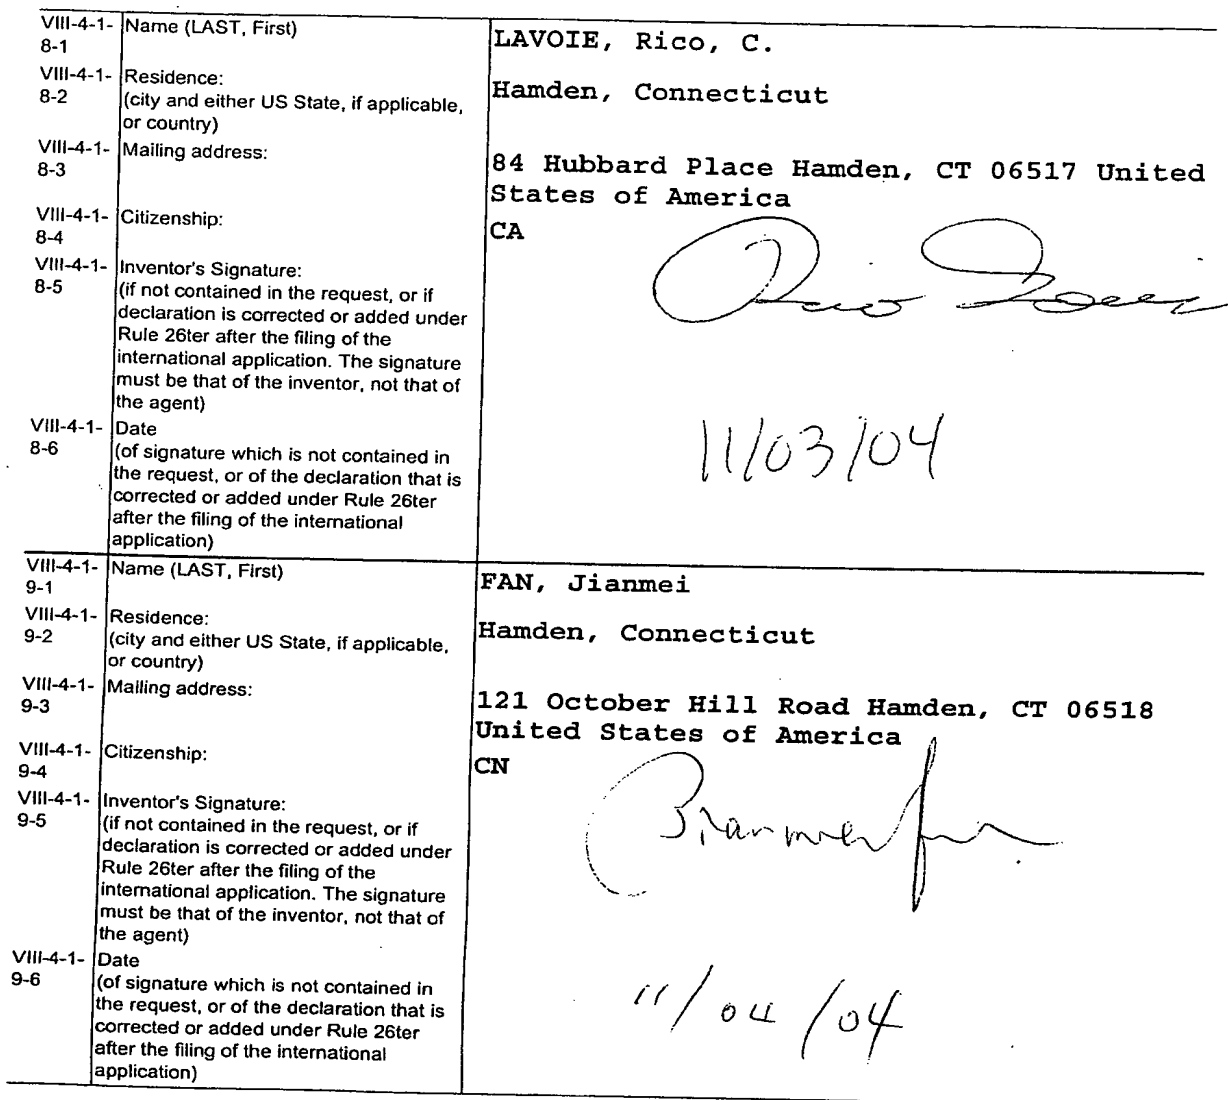 VIII-4-1-8-1 Name (LAST, First) LAVOIE, Rico, C.
VIII-4-1-8-2 Residence: Hamden, Connecticut
(city and either US State, if applicable,
or country)
VIII-4-1-8-3 Mailing address: 84 Hubbard Place Hamden, CT 06517 United
States of America
VIII-4-1-8-4 Citizenship: CA
VIII-4-1-8-5 Inventor's Signature: Rico Lavoie
(if not contained in the request, or if
declaration is corrected or added under
Rule 26ter after the filing of the
international application. The signature
must be that of the inventor, not that of
the agent)
VIII-4-1-8-6 Date 11/03/04
(of signature which is not contained in
the request, or of the declaration that is
corrected or added under Rule 26ter
after the filing of the international
application)
VIII-4-1-9-1 Name (LAST, First) FAN, Jianmei
VIII-4-1-9-2 Residence: Hamden, Connecticut
(city and either US State, if applicable,
or country)
VIII-4-1-9-3 Mailing address: 121 October Hill Road Hamden, CT 06518
United States of America
VIII-4-1-9-4 Citizenship: CN
VIII-4-1-9-5 Inventor's Signature: Jianmei Fan
(if not contained in the request, or if
declaration is corrected or added under
Rule 26ter after the filing of the
international application. The signature
must be that of the inventor, not that of
the agent)
VIII-4-1-9-6 Date 11/04/04
(of signature which is not contained in
the request, or of the declaration that is
corrected or added under Rule 26ter
after the filing of the international
application)